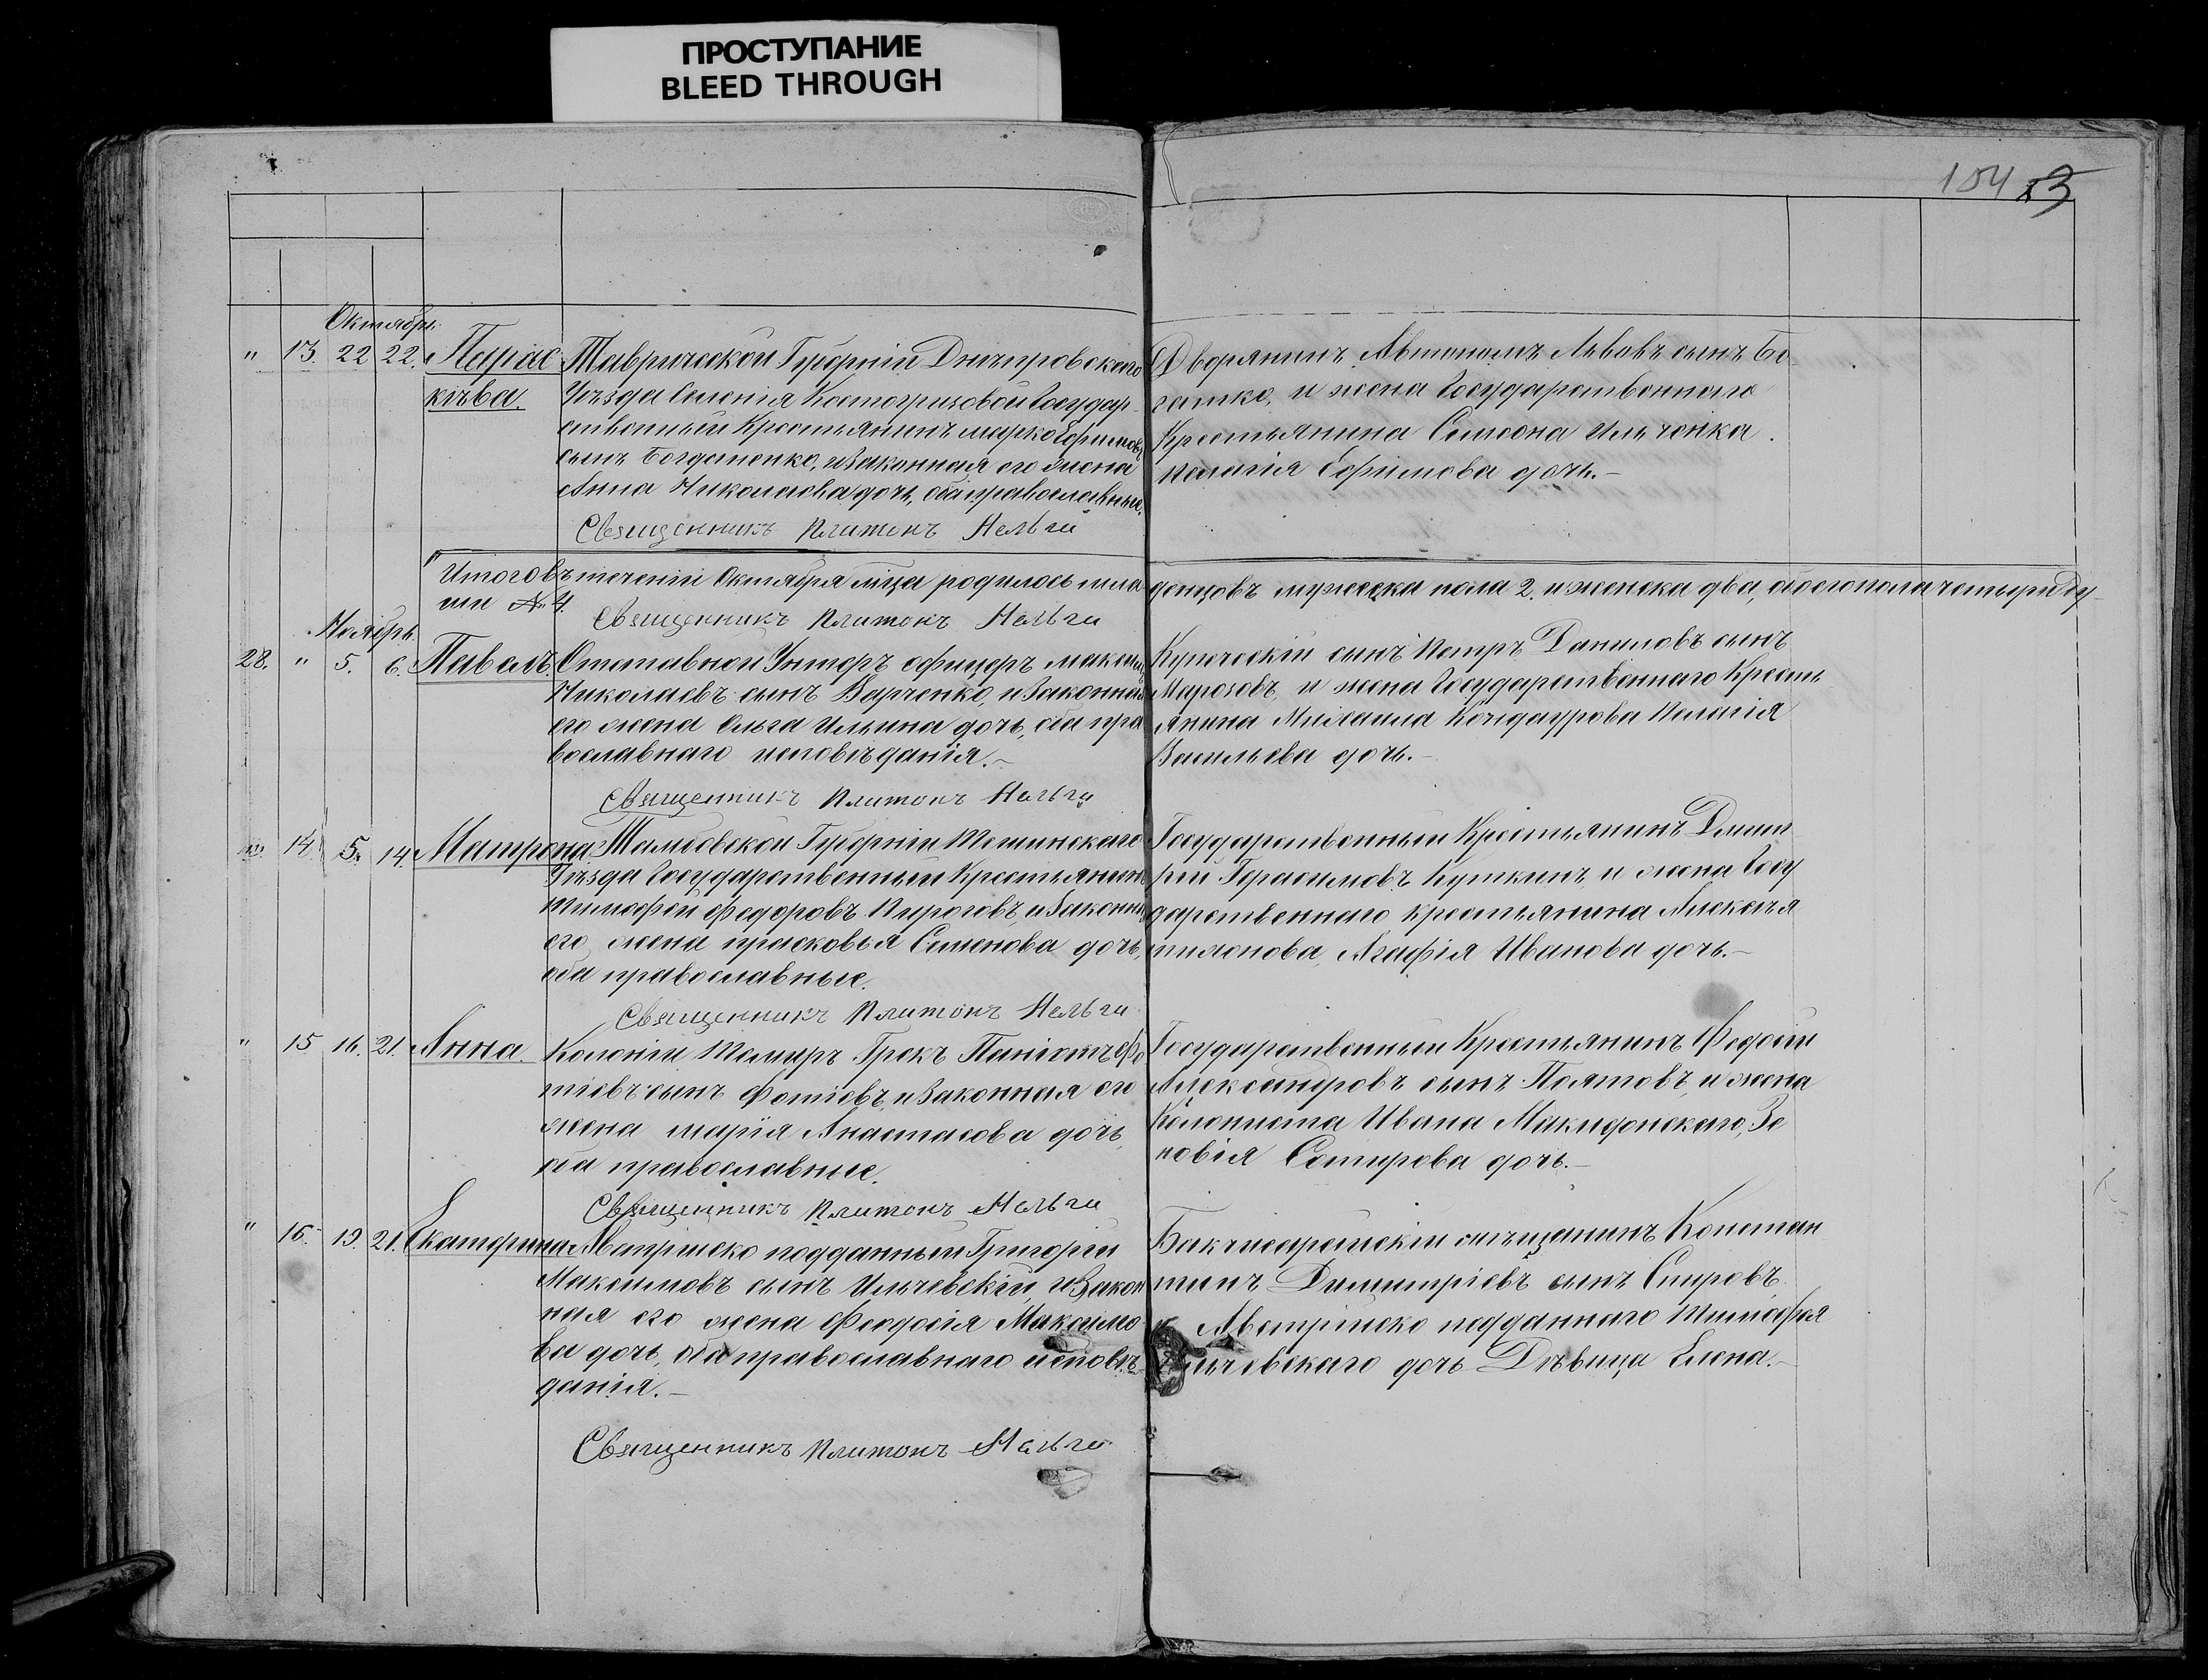 ПРОСТУПАНИЕ
BLEED THROUGH
154 53
Октябрь
" 13. 22 22. Парас
кѣва.
Таврической Губерніи Днѣпровскаго
Уѣзда Селенія Костогризовой Государ-
ственный Крестьянинъ Марко Ефимовъ
сынъ Богданенко, и Законная его жена
Анна Николаева дочь, оба православные.
Священникъ Платонъ
Дворянинъ Автономъ Львовъ сынъ Бо-
гатко, и жена Государственнаго
Крестьянина Симеона Ильченка
Пелагія Ефимова дочь.-
Итого въ теченіи Октября мѣца родилось мла-
денцовъ мужеска пола 2. и женска два, обоего пола четыри Ду-
ши № 4.
Священникъ Платонъ
Ноябрь.
28. " 5. 6. Павелъ.
Отставной Унтеръ офицеръ Максимъ
Николаевъ сынъ Варченко, и Законная
его жена Ольга Ильина дочь, оба пра
вославнаго исповѣданія.-
Священникъ Платонъ
Купеческій сынъ Петръ Даниловъ сынъ
Марозовъ, и жена Государственнаго Кресть
янина Михаила Кондаурова Пелагія
Васильева дочь.-
14 5. 14. Матрона
Тамбовской Губерніи
Уѣзда Государственный Крестьянинъ
Тимофей Федоровъ Пироговъ, и Законная
его жена Прасковья Семенова дочь,
оба православные.
Священникъ Платонъ
Государственный Крестьянинъ Димит
рій Герасимовъ Куткинъ, и жена Госу
дарственнаго крестьянина Алексѣя
Агафія Иванова дочь.-
" 15 16. 21. Анна.
Колоніи Грекъ Панаіотъ Фо
тіевъ сынъ Фотіевъ, и Законная его
жена Марія Анастасова дочь,
оба православные.
Священникъ Платонъ
Государственный Крестьянинъ Федосій
Александровъ сынъ Полтовъ, и жена
Колониста Ивана Македонскаго, Зе
новія Сотирова дочь.-
" 16. 19. 21. Екатерина
Австрійско подданный Григорій
Максимовъ сынъ Ильчевскій, и Закон
ная его жена Феодосія Максимо-
ва дочь, оба православнаго исповѣ-
данія.-
Священникъ Платонъ
Бакчисарайскій мѣщанинъ Констан
тинъ Димитріевъ сынъ Спировъ,
и Австрійско подданнаго Тимофея
Ильчевскаго дочь Дѣвица Елена.-